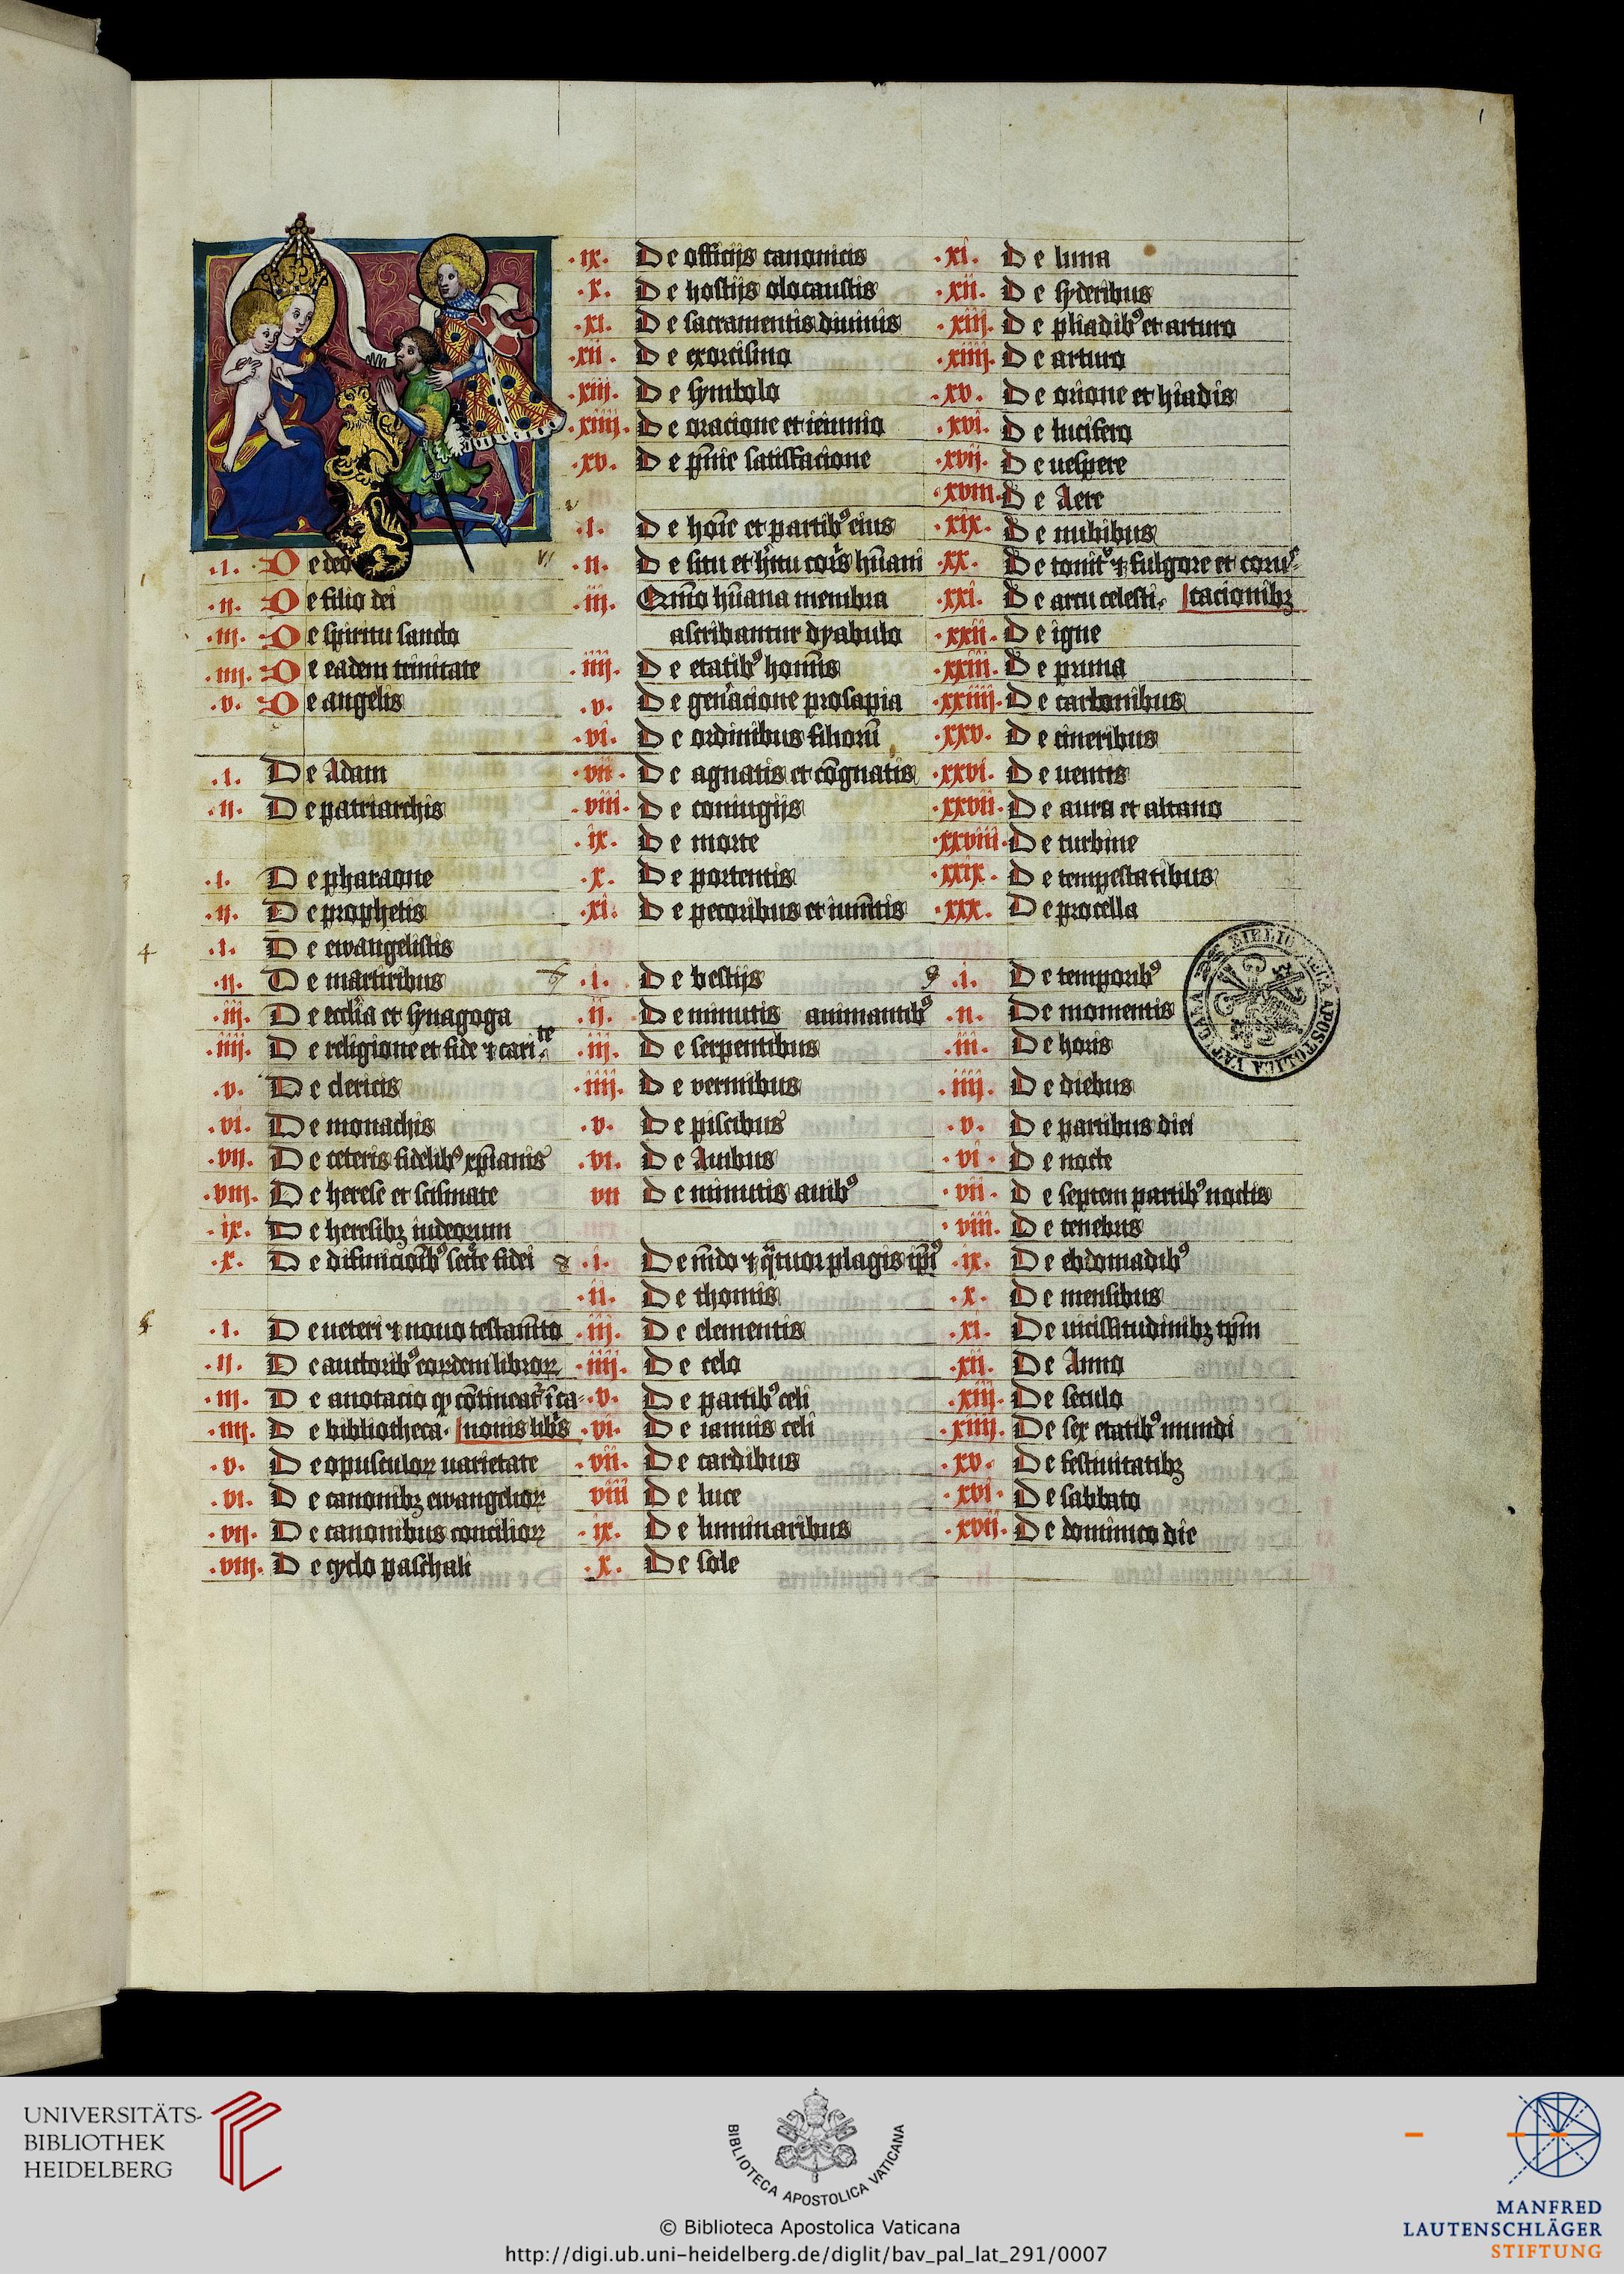 1
.i. De deo
.ii. De filio dei
.iii. De spiritu sancto
.iiii. De eadem trinitate
.v. De angelis
.i. De Adam
.ii. De patriarchis
.i. De pharaone
.ii. De prophetis
4
.i. De ewangelistis
.ii. De martiribus
.iii. De eccl̅ia et synagoga
.iiii. De religione et fide ⁊ carite
.v. De clericis
.vi. De monachis
.vii. De ceteris fidelibꝰ xp̅ianis
.viii. De herese et scismate
.ix. De heresibꝫ iudeorum
.x. De fidei
.i. De ueteri ⁊ nouo testam̅to
.ii. De auctoribꝰ eordem libroꝝ
.iii. De anotacio
.iiii. De bibliotheca. nonis libˢ
.v. De opusculoꝝ uarietate
.vi. De canonibꝫ ewangelioꝝ
.vii. De canonibus concilioꝝ
.viii. De cyclo paschali
.ix. De officijs canonicis
.x. De hostijs olocaustis
.xi. De sacramentis diuinis
.xii. De exorcismo
.xiii. De symbolo
.xiiii. De oracione et ieiunio
.xv. De pn̅ie satisfacione
v
vi
.i. De ho̅ie et partibꝰ eius
.ii. De situ et hu̅ani
.iii. Qm̅o hu̅ana membra
ascribantur dyabulo
.iiii. De etatibꝰ homi̅s
.v. De gen̅acione prosapia
.vi. De ordinibus filioru̅
.vii. De agnatis et co̅gnatis
.viii. De coniugijs
.ix. De morte
.x. De portentis
.xi. De pecoribus et ium̅tis
.i. De bestijs
.ii. De minutis animantibꝰ
.iii. De serpentibus
.iiii. De vermibus
.v. De piscibus
.vi. De Auibus
vii De minutis auibꝰ
8 .i. De mu̅do ⁊ q̅tuor plagis ip̅iꝰ
.ii. De thomis
.iii. De elementis
.iiii. De celo
.v. De partibꝰ celi
.vi. De ianuis celi
.vii. De cardibus
viii De luce
.ix. De luminaribus
.x. De sole
.xi. De luna
.xii. De syderibus
.xiii. De pliadibꝰ et arturo
.xiiii. De arturo
.xv. De orione et hiadis
.xvi. De lucifero
.xvii. De uespere
.xviii. De Aere
.xix. De nubibus
.xx. De tonitꝰ ⁊ fulgore et corus
.xxi. De arcu celesti. cacionibꝫ
.xxii. De igne
.xxiii. De pruna
.xxiiii. De carbonibus
.xxv. De cineribus
.xxvi. De uentis
.xxvii. De aura et altano
.xxviii. De turbine
.xxix. De tempestatibus
.xxx. De procella
9 .i. De temporibꝰ
.ii. De momentis
.iii. De horis
.iiii. De diebus
.v. De partibus diei
.vi. De nocte
.vii. De septem partibꝰ noctis
.viii. De tenebris
.ix. De ebdomadibꝰ
.x. De mensibus
.xi. De uicissitudinibꝫ tp̅m
.xii. De Anno
.xiii. De seculo
.xiiii. De sex etatibꝰ mundi
.xv. De festiuitatibꝫ
.xvi. De sabbato
.xvii. De dominico die
BIBLIOTHECA APOSTOLICA VATICANA
UNIVERSITÄTS-
BIBLIOTHEK
HEIDELBERG
BIBLIOTECA APOSTOLICA VATICANA
© Biblioteca Apostolica Vaticana
http://digi.ub.uni-heidelberg.de/diglit/bav_pal_lat_291/0007
MANFRED
LAUTENSCHLÄGER
STIFTUNG